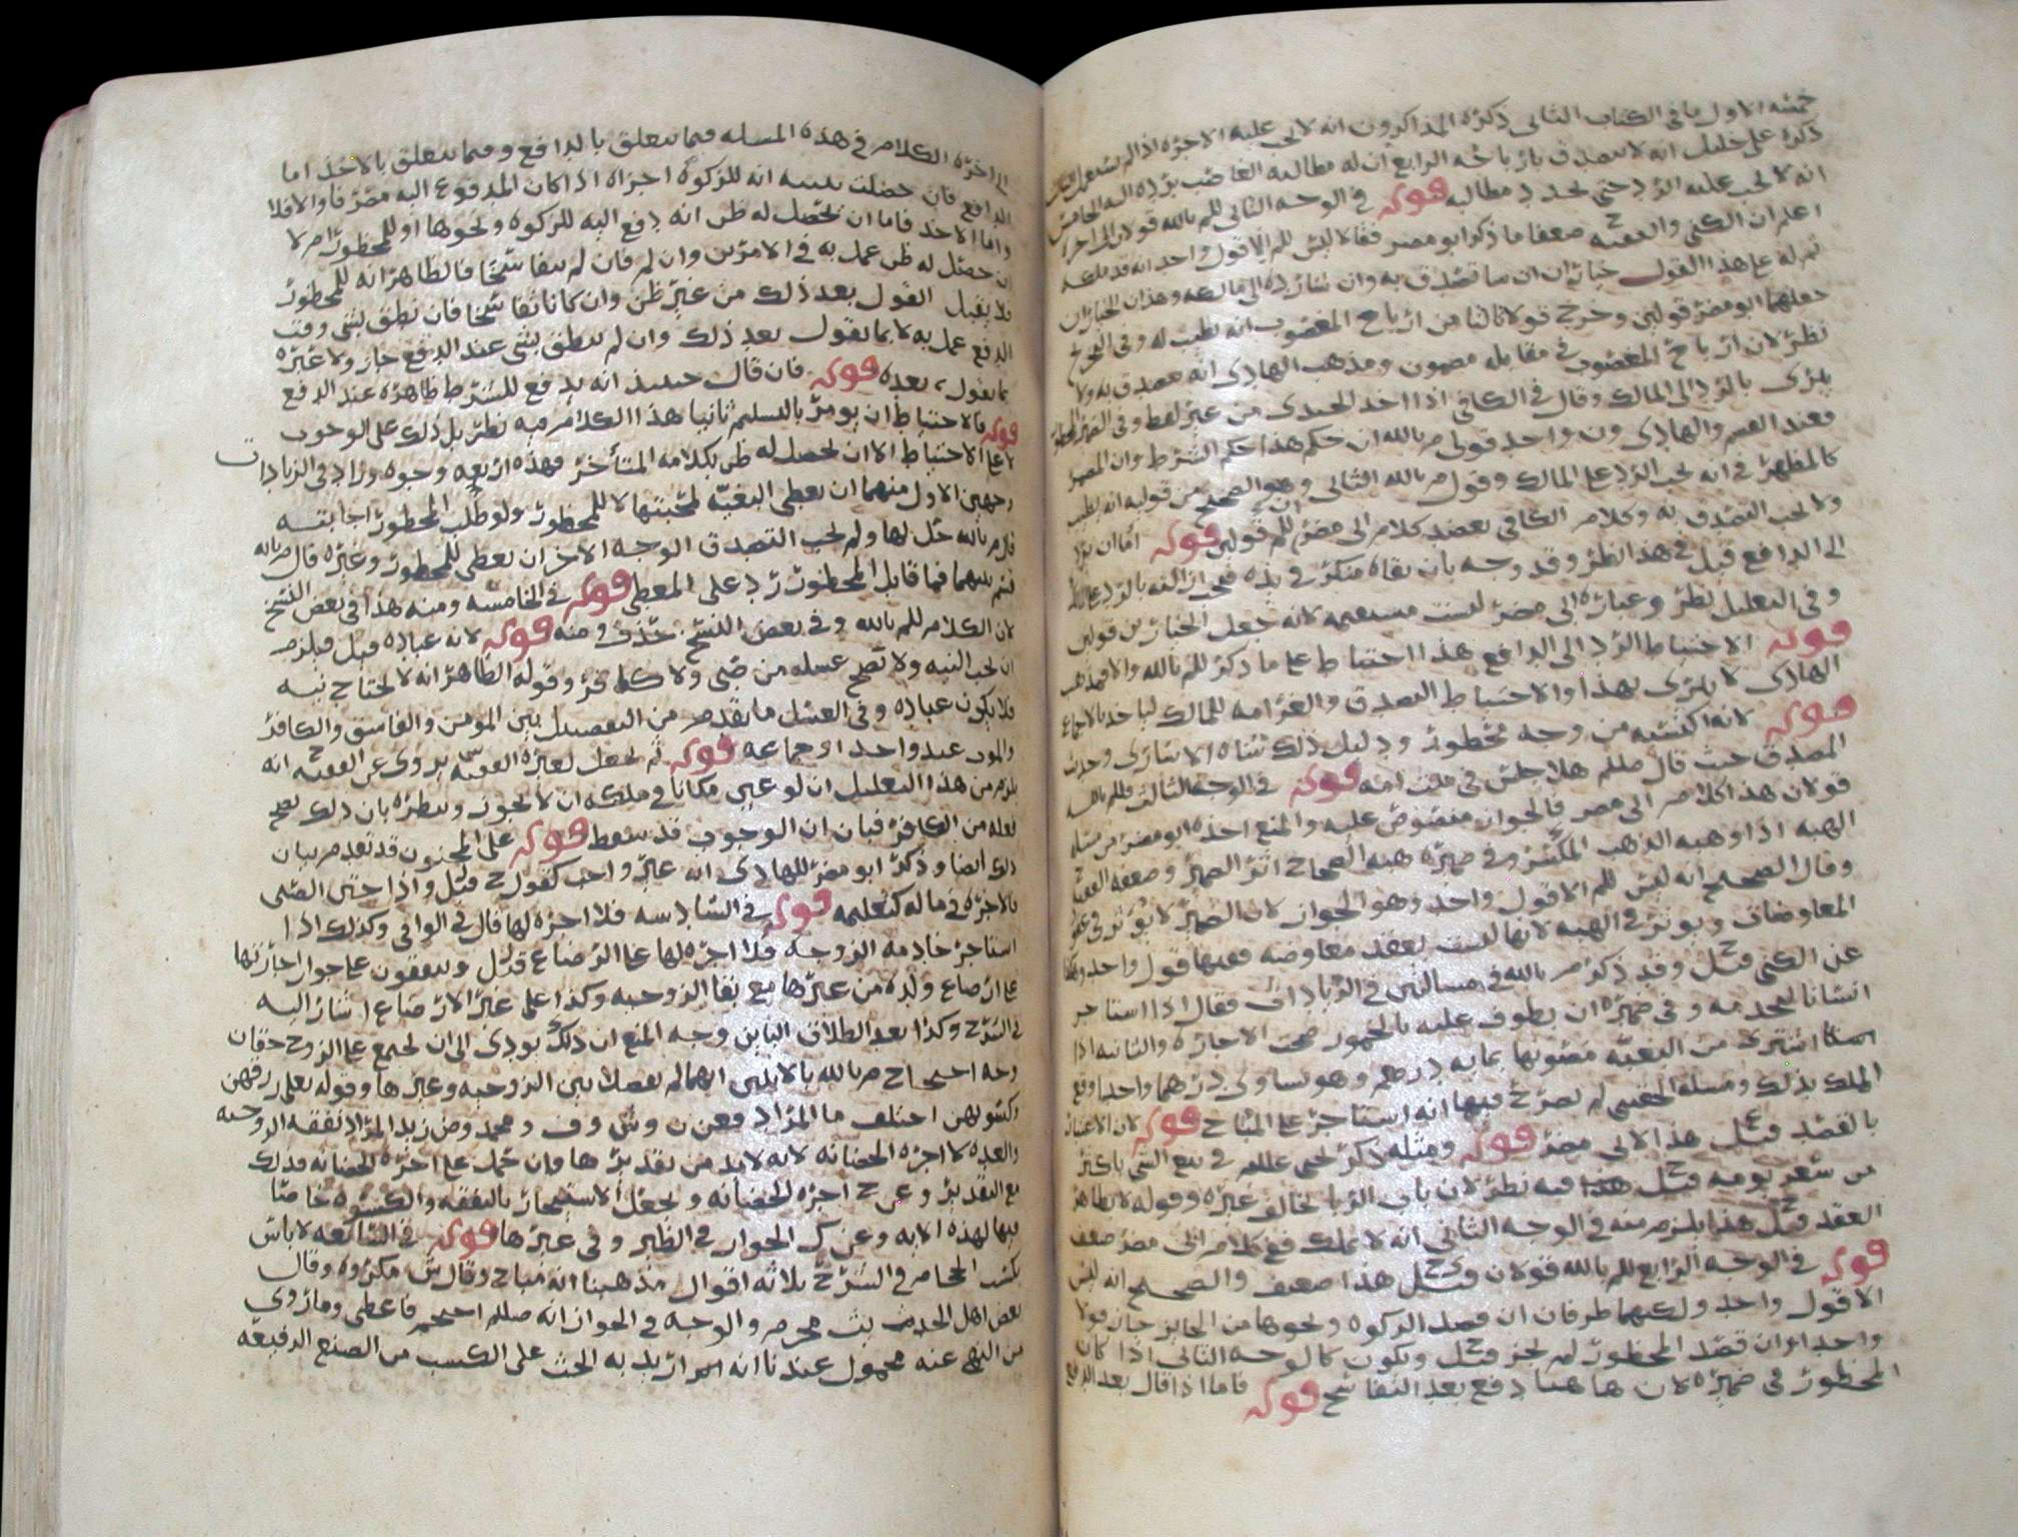 خمسه الاول ما في الكتاب الثاني ذكره المذاكرون انه لا يجب عليه الاجره اذا لم
ذكره على خليل انه لا يتصدق بارباحه الرابع ان له مطالبة الغاصب برده اليه الخامس
انه لا يجب عليه الرد حتى يجدد مطالبه قوله في الوجه الثاني للم بالله قولان
اعلم ان الكني والفقيه ح ضعفا ما ذكر ابو مضر فقالا ليس للم الا قول واحد انه قد ملكه
ثم له على هذا القول خياران ان شا تصدق به وان شا رده الى مالكه وهذان الخياران
جعلهما ابو مضر قولين وخرج قولا ثالثا من ارباح المغصوب انه يطيب له وفي التخريج
نظر لان ارباح المغصوب في مقابله مضمون ومذهب الهادي انه يتصدق به ولا
يبرى بالرد الى المالك وقال في الكافي اذا اخذ الجندي من غير لفظ وفي
فعند القسم والهادي ون واحد قولى م بالله ان حكم هذا حكم الشرط وان المضمر
كالمظهر في انه يجب الرد على المالك وقول م بالله الثاني وهو الصحيح من قوليه انه يطيب
ولا يجب التصدق به وكلام الكافي يعضد كلام ابي مضر ان للم قولين قوله اما ان يرد
الى الدافع قيل ف هذا نظر وقد وجه بان بقاه منكر في يده فهي ازالته بالرد
وفي التعليل نظر وعبارة ابي مضر ليست مستقيمه لانه جعل الخيارين قولين
قوله الاحتياط الرد الى الدافع هذا احتياط على ما ذكر للم بالله والا فمذهب
الهادي لا يبرى بهذا والاحتياط التصدق والغرامه للمالك لياخذ بالاجماع
قوله لانه اكتسبه من وجه محظور ودليل ذلك شاة الاسارى وحديث
المصدق حيث قال صللم هلا جلس في بيت امه قوله في الوجه الثالث فللم بالله
قولان هذا كلام ابي مضر فالجواز منصوص عليه والمنع اخذه ابو مضر من مسله
الهبه اذا وهبه الذهب المكسر وفي ضميره هبه الصحاح اثر الضمير وضعفه الفقيه
وقال الصحيح انه ليس للم الا قول واحد وهو الجواز لان الضمير لا يوثر في عقود
المعاوضات ويوثر في الهبه لانها ليست بعقد معاوضه ففيها قول واحد
عن الكني قيل ح وقد ذكره م بالله في مسالتين في الزيادات فقال اذا استاجر
انسانا ليخدمه وفي ضميره ان يطوف عليه بالخمور صحت الاجاره والثانيه اذا
اشترى من البغيه مضمونها بمايه درهم وهو يساوي درهما واحدا وقع
الملك بذلك ومسله الخصي لم يصرح فيها انه استاجر على المباح قوله لان الاعتبار
بالقصد قيل ع هذا لابي مضر قوله ومثله ذكر يحيى علللم في بيع الشي باكثر
من سعر يومه قيل ح فيه نظر لان باب الربا يخالف غيره وقوله لا بظاهر
العقد قيل ح هذا يلزم منه في الوجه الثاني انه لا يملك فع كلام ابي مضر ضعف
قوله في الوجه الرابع للم بالله قولان قيل ح هذا ضعيف والصحيح انه ليس
الا قول واحد ولكنهما طرفان ان قصد الزكوه ونحوها من الجايز جاز قولا
واحدا وان قصد المحظور لم يجز قيل ح ويكون كالوجه الثاني اذا كان
المحظور في ضميره لان هاهنا دفع بعد التفاسخ قوله فاما اذا قال بعد الدفع
الى اخره الكلام في هذه المسله فيما يتعلق بالدافع وفيما يتعلق بالاخذ اما
الدافع فان حصلت بنيته انه للزكوه اجزاه اذا كان المدفوع اليه مصرفا والا فلا
واما الاخذ فاما ان يحصل له ظن انه دفع اليه للزكوه ونحوها او للمحظور ام لا
ان حصل له ظن عمل به في الامرين وان لم فان لم يتفاسخا فالظاهر انه للمحظور
فلا يقبل القول بعد ذلك من غير ظن وان كانا تفاسخا فان نطق بشي وقت
الدفع عمل به لا بما يقول بعد ذلك وان لم ينطق بشي عند الدفع جاز ولا عبره
بما يقول بعده قوله فان قال حينيذ انه يدفع للشرط ظاهره عند الدفع
قوله فالاحتياط ان يومر بالتسليم ثانيا هذا الكلام فيه نظر بل ذلك على الوجوب
لا على الاحتياط الا ان يحصل له ظن بكلامه المتاخر فهذه اربعه وجوه وزاد في الزيادات
وجهين الاول منهما ان يعطي البغيه لمحبتها لا للمحظور ولو طلب المحظور اجابته
قال م بالله حل لها ولم يجب التصدق الوجه الاخر ان يعطي للمحظور وغيره قال م بالله
قسم بينهما فما قابل المحظور رد على المعطي قوله في الخامسه ومنه هذا في بعض النسخ
لان الكلام للم بالله وفي بعض النسخ حذف ومنه قوله لانه عباده قيل فيلزم
ان يجب النيه ولا يصح غسله من صبي ولا كافر وقوله الظاهر انه لا يحتاج نيه
فلا يكون عباده وفي الغسل ما تقدم من التفصيل بين المومن والفاسق والكافر
والموذن عبد واحد او جماعه قوله ثم يجعل لغيره الفقيه س يروى عن الفقيه ح انه
يلزم من هذا التعليل ان لو عين مكانا في ملكه ان لا يجوز وينظره بان ذلك يصح
فعله من الكافر فبان ان الوجوب قد سقط قوله على المجنون قد تقدم بيان
ذلك ايضا وذكر ابو مضر للهادي انه غير واجب كقول ح قيل واذا ختن الصبي
فالاجره في ماله كتعليمه قوله في السادسه فلا اجره لها قال في الوافي وكذلك اذا
استاجر خادمه الزوجه فلا اجره لها على الرضاع قيل ل ويتفقون على جواز اجارتها
على ارضاع ولده من غيرها مع بقا الزوجيه وكذا على غير الارضاع اشار اليه
في الشرح وكذا بعد الطلاق الباين وجه المنع ان ذلك يودي الى ان يجتمع على الزوج حقان
وجه احتجاج م بالله بالايتين انهما لم يفصلا بين الزوجيه وغيرها وقوله تعالى رزقهن
وكسوتهن اختلف ما المراد فعن ن وش وف ومحمد وض زيد المراد نفقه الزوجيه
والعده لا اجره الحضانه لانه لا بد من تقديرها وان حمل على اجره الحضانه فذلك
مع التقدير وعن ح اجره للحضانه ويجعل الاستيجار بالنفقه والكسوه خاصا
فيها لهذه الايه وعن ك الجواز في الظير وفي غيرها قوله في السابعه لا باس
بكسب الحجام في الشرح ثلاثه اقوال مذهبنا انه مباح وقال ش مكروه وقال
بعض اهل الحديث بث محرم والوجه في الجواز انه صللم احتجم فاعطى وما روي
من النهي عنه محمول عندنا انه انما اريد به الحث على الكسب من الصنع الرفيعه